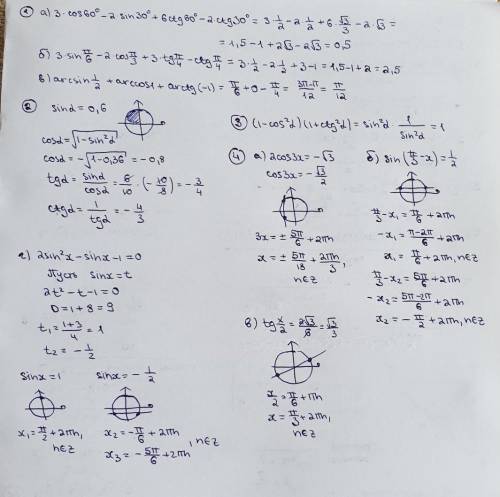 ① а) 3·cos60° - 2 sin30° + 6ctg60° - 2·ctg30° = 3·1/2 - 2·1/2 + 6·√3/3 - 2·√3 =
= 1,5 - 1 + 2√3 - 2√3 = 0,5
б) 3·sin π/6 - 2cos π/3 + 3·tg π/4 - ctg π/4 = 3·1/2 - 2·1/2 + 3 - 1 = 1,5 - 1 + 2 = 2,5
в) arcsin 1/2 + arccos1 + arctg(-1) = π/6 + 0 - π/4 = (3π-π)/12 = π/12
② sinα = 0,6
cosα = √(1-sin²α)
cosα = -√(1-0,36) = -0,8
tgα = sinα/cosα = 6/10 · (-10/8) = -3/4
ctgα = 1/tgα = -4/3
③ (1-cos²α)(1+ctg²α) = sin²α · 1/sin²α = 1
④ а) 2cos3x = -√3
cos3x = -√3/2
3x = ± 5π/6 + 2πn
x = ± 5π/18 + 2πn/3,
n∈z
б) sin(π/3 - x) = 1/2
π/3 - x₁ = π/6 + 2πn
-x₁ = (π-2π)/6 + 2πn
x₁ = π/6 + 2πn, n∈z
π/3 - x₂ = 5π/6 + 2πn
-x₂ = (5π-2π)/6 + 2πn
x₂ = -π/2 + 2πn, n∈z
в) tg x/2 = 2√3/6 = √3/3
x/2 = π/6 + πn
x = π/3 + 2πn,
n∈z
г) 2sin²x - sinx - 1 = 0
Пусть sinx = t
2t² - t - 1 = 0
D = 1 + 8 = 9
t₁ = (1+3)/4 = 1
t₂ = -1/2
sinx = 1
x₁ = π/2 + 2πn,
n∈z
sinx = -1/2
x₂ = -π/6 + 2πn
x₃ = -5π/6 + 2πn, n∈z